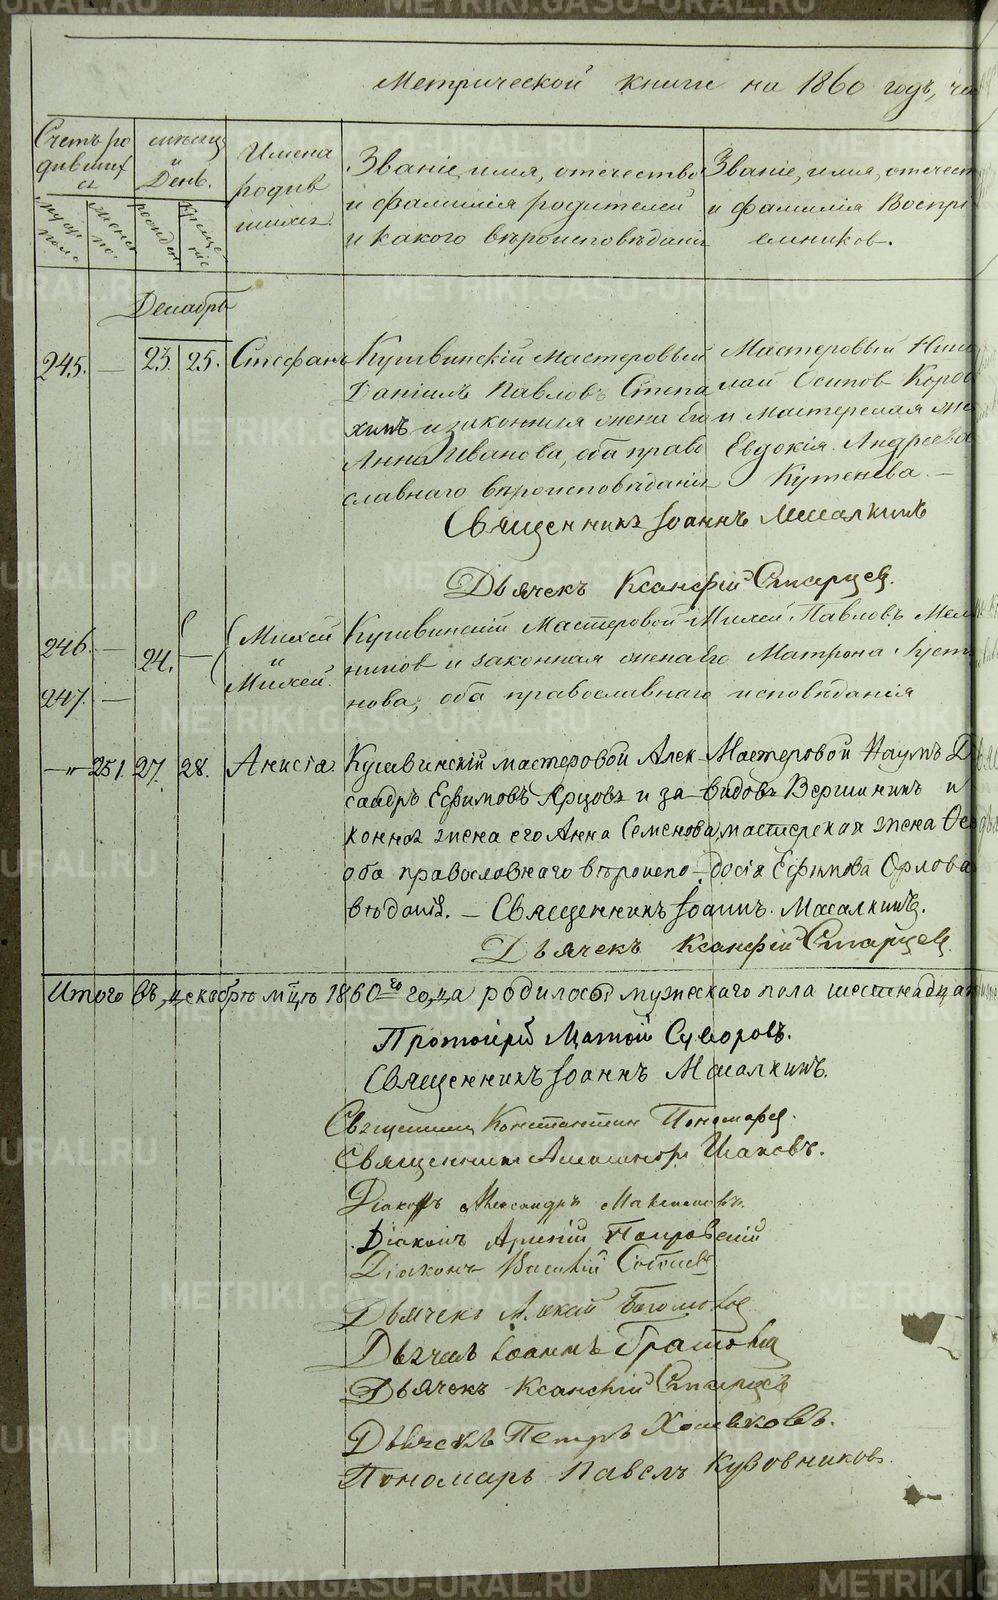 Метрической книги на 1860 годъ, ча
Счетъ ро
дивших
ся
мѣсяцъ
и
День.
Имена
родив
шихся
Званіе, имя, отечество
и фамилія родителей
и какого вѣроисповѣданія
Званіе, имя, отечест
и фамилія Воспрі
емниковъ.
Декабрь
245. — 23. 25. Стефанъ
Кушвинскій мастеровый
Даніилъ Павловъ Степа
хинъ и законная жена его
Анна Иванова, оба право
славнаго вѣроисповѣданія
Мастеровый Нико
лай Осиповъ Коров
и мастерская же
Евдокія Андреева
Кутенева. —
Священникъ Іоаннъ Масалкинъ
Дьячекъ Ксанфій Старцев.
246. —
247. —
24. —
Михей
и
Михей.
Кушвинскій Мастеровой Михей Павловъ Мел
никовъ и законная жена его Матрона Густи
нова, оба православнаго исповѣданія
—"— 251. 27. 28. Анисія.
Кушвинскій мастеровой Алек
сандръ Ефимовъ Ярцовъ и за
конная жена его Анна Семенова,
оба православнаго вѣроиспо
вѣданія. —
Мастеровой Наумъ Д
видовъ Вершининъ и
мастерская жена Ѳео
досія Ефимова Орлова
Священникъ Іоаннъ Масалкинъ.
Дьячекъ Ксанфій Старцев
Итого въ декабрѣ мцѣ 1860го года родилось мужескаго пола шестнадцат
Протоіерей Матѳій Суворовъ.
Священникъ Іоаннъ Масалкинъ.
Священникъ Константинъ Пономарев.
Священникъ Александръ Исаковъ.
Діаконъ Александръ Максимовъ.
Діаконъ Арсеній Покровскій
Діаконъ Василій
Дьячекъ Алексій Богомолов
Дьячекъ Іоаннъ
Дьячекъ Ксанфій Старцевъ
Дьячекъ Петръ Хомяковъ.
Пономарь Павелъ Кузовниковъ.
METRIKI.GASO-URAL.RU